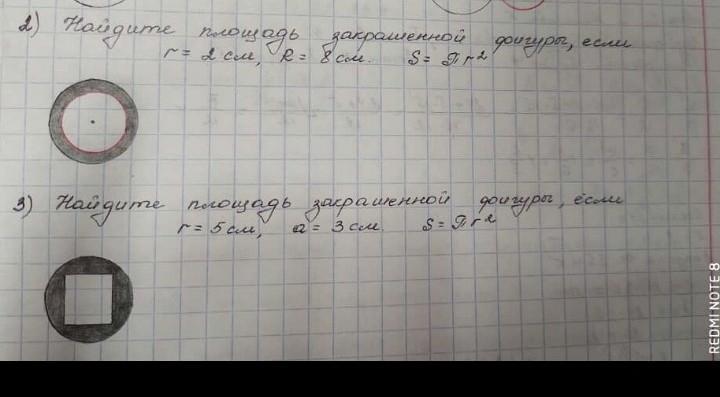 2) Найдите площадь закрашенной фигуры, если
r = 2 см, R = 8 см. S = πr²
3) Найдите площадь закрашенной фигуры, если
r = 5 см, a = 3 см. S = πr²
REDMI NOTE 8